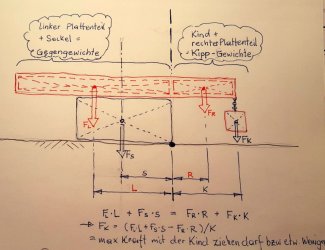 Linker Plattenteil
+ Sockel =
Gegengewichte
Kind +
rechter Plattenteil
= Kipp-Gewichte
F_L
F_R
F_K
F_S
S
R
L
K
F_L·L + F_S·S = F_R·R + F_K·K
F_K = (F_L·L + F_S·S - F_R·R)/K
= max Kraft mit der Kind ziehen darf bzw etw. Weniger